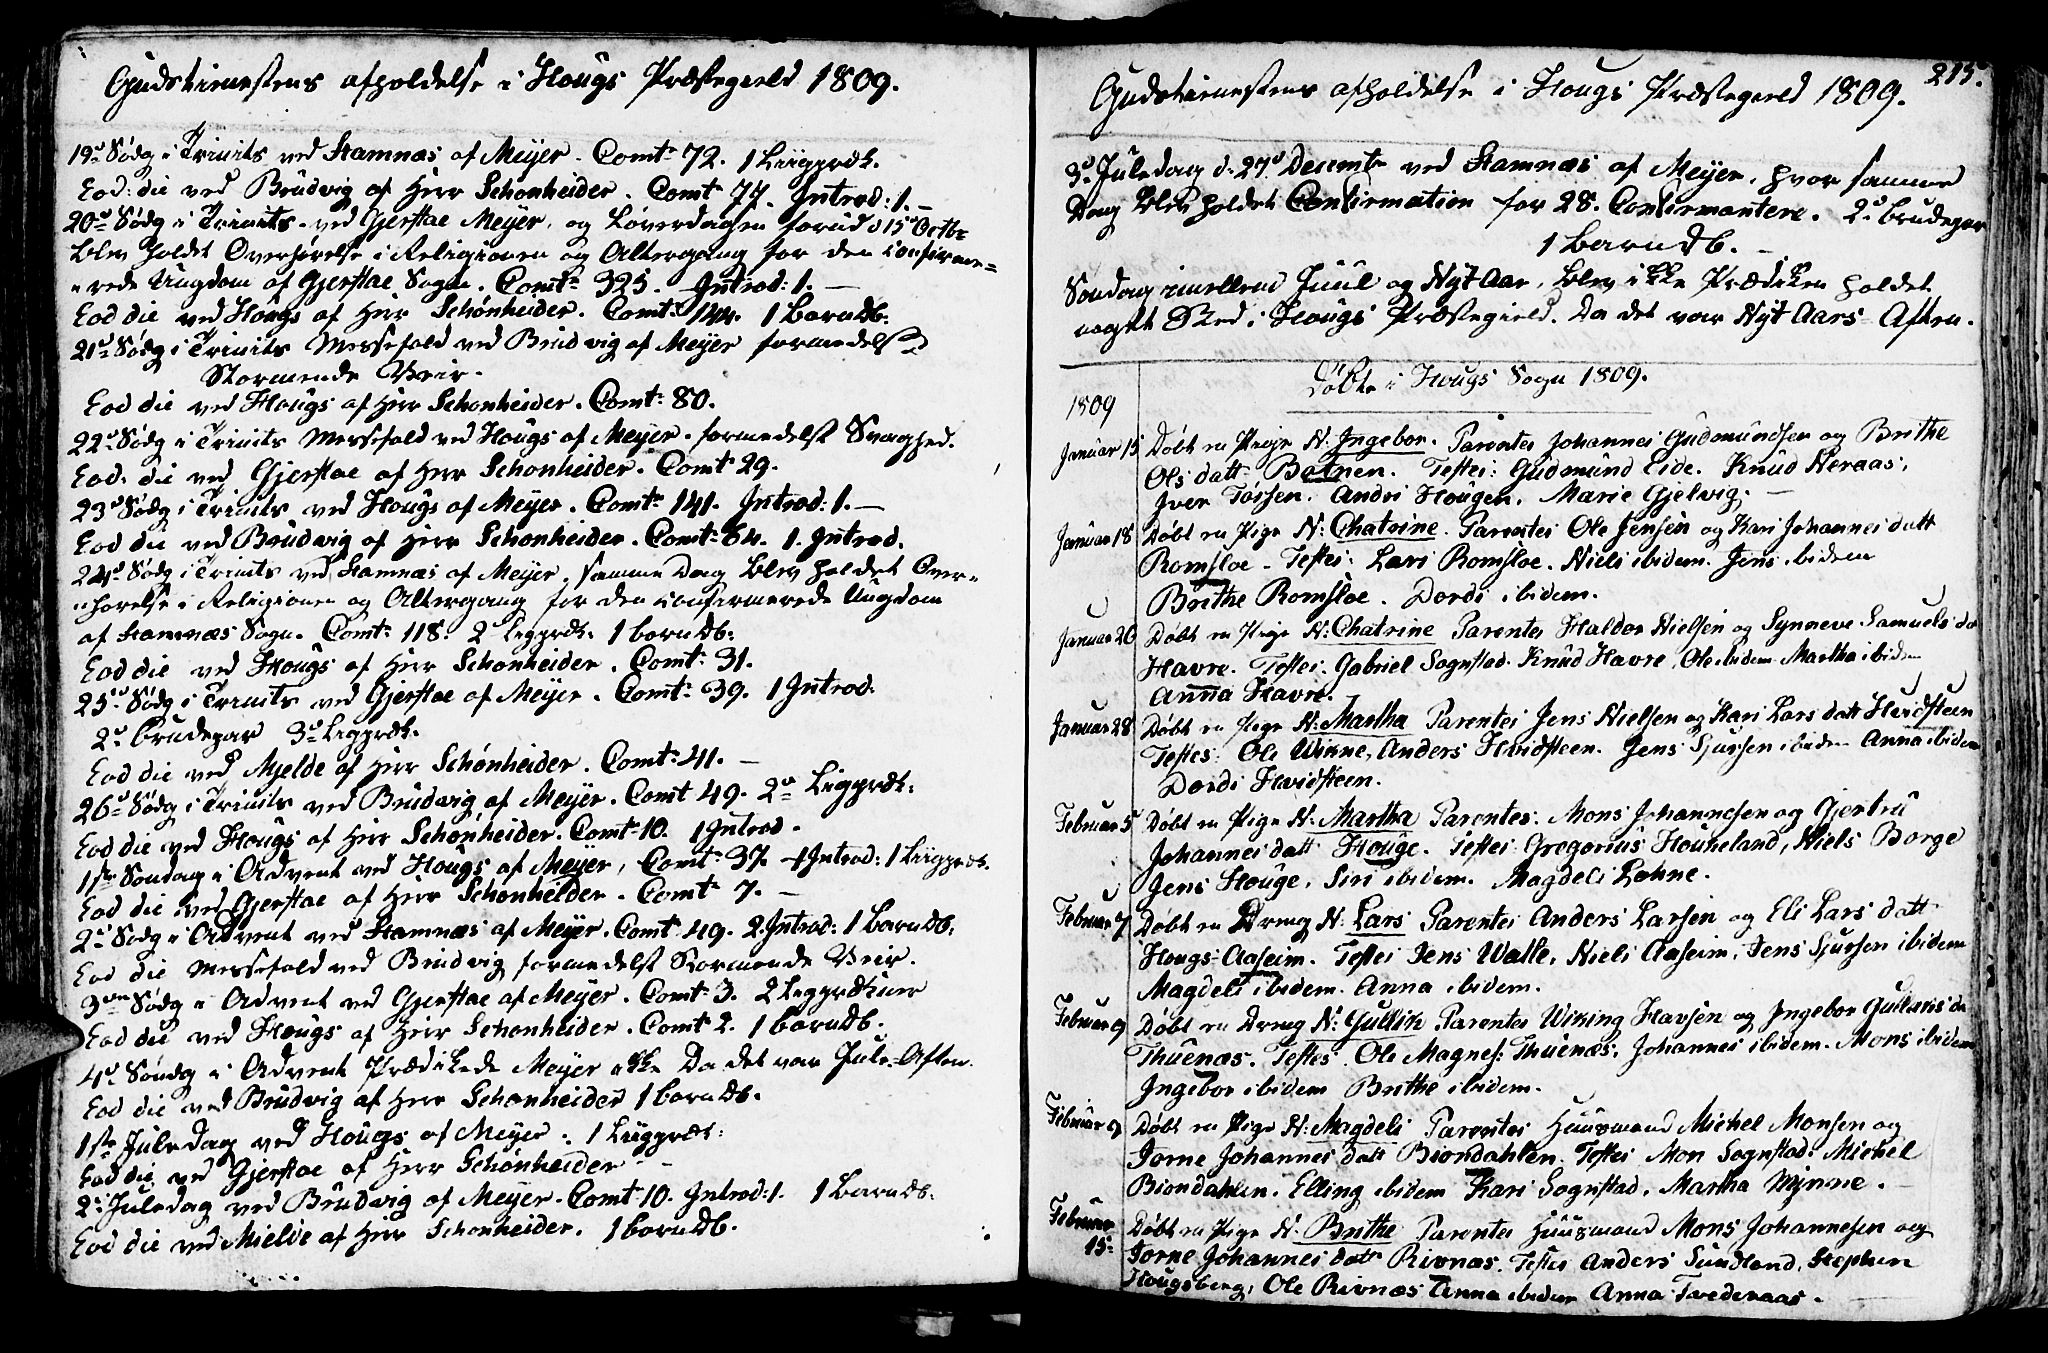 Gudstienestens afholdelse i Hougs Præstegield 1809.
19de Søndg i Trinits ved Stamnæs af Meyer. Comt: 72. 1 Liigpræk.
Eod: die ved Brudvig af Herr Schønheider. Comt: 77. Introd: 1.
20de Søndg i Trinits. ved Gjerstae Meyer, og Løverdagen forud d 15de Octbr
blev holdet Overhørelse i Religionen og Altergang for den confirme=
=rede Ungdom af Gjerstae Sogn. Comt: 325. Introd: 1.
Eod die ved Hougs af Herr Schønheider. Comt: 144. 1 barndb:
21de Søndg i Trinits Messefald ved Brudvig af Meyer formedelst
Stormende Veir.
Eod die ved Hougs af Herr Schønheider. Comt: 80.
22de Søndg i Trinits Messefald ved Hougs af Meyer. formedelst Svaghed.
Eod: die ved Gjerstae af Herr Schønheider. Comt 29.
23de Søndg i Trinits ved Hougs af Meyer. Comt: 141. Introd: 1.
Eod die ved Brudvig af Herr Schønheider. Comt: 64. 1. Introd.
24de Søndg i Trinits ved Stamnæs af Meyer. samme Dag blev holdet Over=
=hørelse i Religionen og Altergang for den confirmerede Ungdom
af Stamnæs Sogn. Comt: 118. 2 Ligpræk. 1 barndb:
Eod die ved Hougs af Herr Schønheider. Comt: 31.
25de Søndg i Trinits ved Gjerstae af Meyer. Comt: 39. 1 Introd.
2de brudepar 3de Ligpræk.
Eod die ved Mjelde af Herr Schønheider. Comt: 41.
26de Søndg i Trinits ved Brudvig af Meyer. Comt 49. 2de Ligpræk:
Eod die ved Hougs af Herr Schønheider. Comt: 10. 1 Introd.
1ste Søndag i Advent ved Hougs af Meyer, Comt: 37. 1 Introd: 1 Liigpræk.
Eod die ved Gjerstae af Herr Schønheider. Comt: 7.
2de Søndg i Advent ved Stamnæs af Meyer. Comt 49. 2 Introd: 1 barndb:
Eod die Messefald ved Brudvig formedelst Stormende Veir.
3die Søndg i Advent ved Gjerstae af Meyer. Comt: 3. 2 Ligprækner
Eod die ved Hougs af Herr Schønheider. Comt: 2. 1 barndb.
4de Søndg i Advent Prædikede Meyer ikke Da det var Jule-Aften.
Eod die ved Brudvig af Herr Schønheider 1 barndb.
1ste Juledag ved Hougs af Meyer. 1 Liigpræk:
Eod die ved Gjerstae af Herr Schønheider
2de Juledag ved Brudvig af Meyer. Comt: 10. Introd: 1. 1 barndb:
Eod die ved Mielde af Herr Schønheider. 1 barndb.
215.
Gudstienestens afholdelse i Hougs Præstegield 1809.
3de Juledag d: 27de Decembr ved Stamnæs af Meyer, hvor samme
Dag blev holdet Confirmation for 28. Confirmantere. 2de brudepar
1 barndb.
Søndag imellem Juul og Nyt Aar, blev ikke Prædiken holdet
noget Sted i Hougs Præstegield. Da det var Nyt Aars Aften.
Døbte i Hougs Sogn 1809.
1809
Januar 15 Døbt en Pige N: Ingebor. Parentes Johannes Gudmundsen og Brithe
Ols datt Botnen. Testes: Gudmund Eide. Knud Neraas.
Iver Tøssen. Andri Hougen. Marie Gjelvig.
Januar 18 Døbt en Pige N: Chatrine. Parentes Ole Jensen og Kari Johannes datt
Romsloe. Testes: Lars Romsloe. Niels ibidem. Jens ibidem
Brithe Romsloe. Dordi ibidem.
Januar 20 Døbt en Pige N: Chatrine Parentes Haldor Nielsen og Synneve Samuels dt
Havre. Testes: Gabriel Sognstad. Knud Havre, Ole ibidem. Martha ibidem
Anna Havre.
Januar 28 Døbt en Pige N: Martha Parentes Jens Nielsen og Kari Lars datt Hvidsteen
Testes: Ole Winne, Anders Hvidsteen. Jens Sjursen ibidem Anna ibidem
Dordi Hvidsteen.
Februar 5 Døbt en Pige N: Martha Parentes: Mons Johannesen og Gjertru
Johannes datt Houge. Testes Gregorius Houkeland, Niels Borge
Jens Houge, Siri ibidem. Magdeli Løhne.
Februar 7 Døbt en Dreng N: Lars Parentes Anders Larsen og Eli Lars datt
Hougs-Aaseim. Testes Jens Walle, Niels Aaseim, Jens Sjursen ibidem
Magdeli ibidem. Anna ibidem.
Februar 9 Døbt en Dreng N: Gullik Parentes Wiking Havsen og Ingebor Gulliks dt
Thuenæs. Testes. Ole Magnes: Thuenæs, Johannes ibidem. Mons ibidem
Ingebor ibidem Brithe ibidem.
Februar 9 Døbt en Pige N: Magdeli Parentes Huusmand Michel Monsen og
Jorne Johannes datt Biøndahlen. Testes Mon Sognstad. Michel
Biøndahlen. Elling ibidem Kari Sognstad. Martha Wynne.
Februar 15. Døbt en Pige N: Brithe Parentes Huusmand Mons Johannesen og
Jorne Johannes datt Rivnæs. Testes Anders Sundland, Stephen
Hougsberg, Ole Rivnæs Anna ibidem Anna Tvederaas.